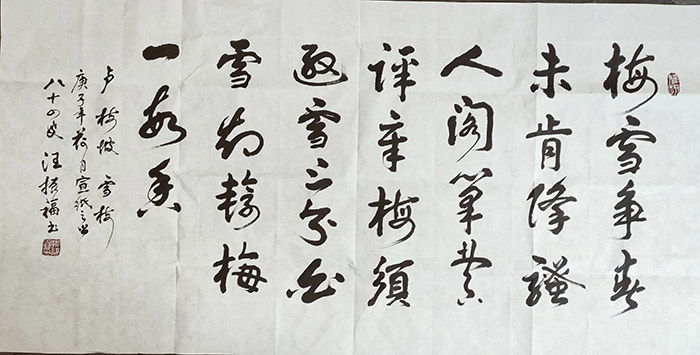 梅雪争春
未肯降骚
人阁笔费
评章梅須
逊雪三分白
雪却输梅
一段香
卢梅坡 雪梅
庚子年荷月宣纸之乡
八十四岁 汪 福书